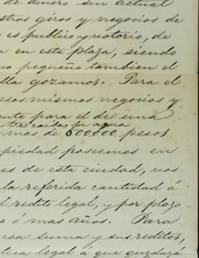 de dinero sin actual
stros giros y negocios de
es publico y notorio, de
n en esta plaza, siendo
no pequeño tambien el
lla gozamos. Para el
esos mismos negocios y
ente para el de una
mas de 600.000 pesos
piedad poseemos en
es de esta ciudad, nos
la referida cantidad á
l redito legal, y por plazo
o ó mas años. Para
esa suma y sus reditos,
teca legal á que quedará